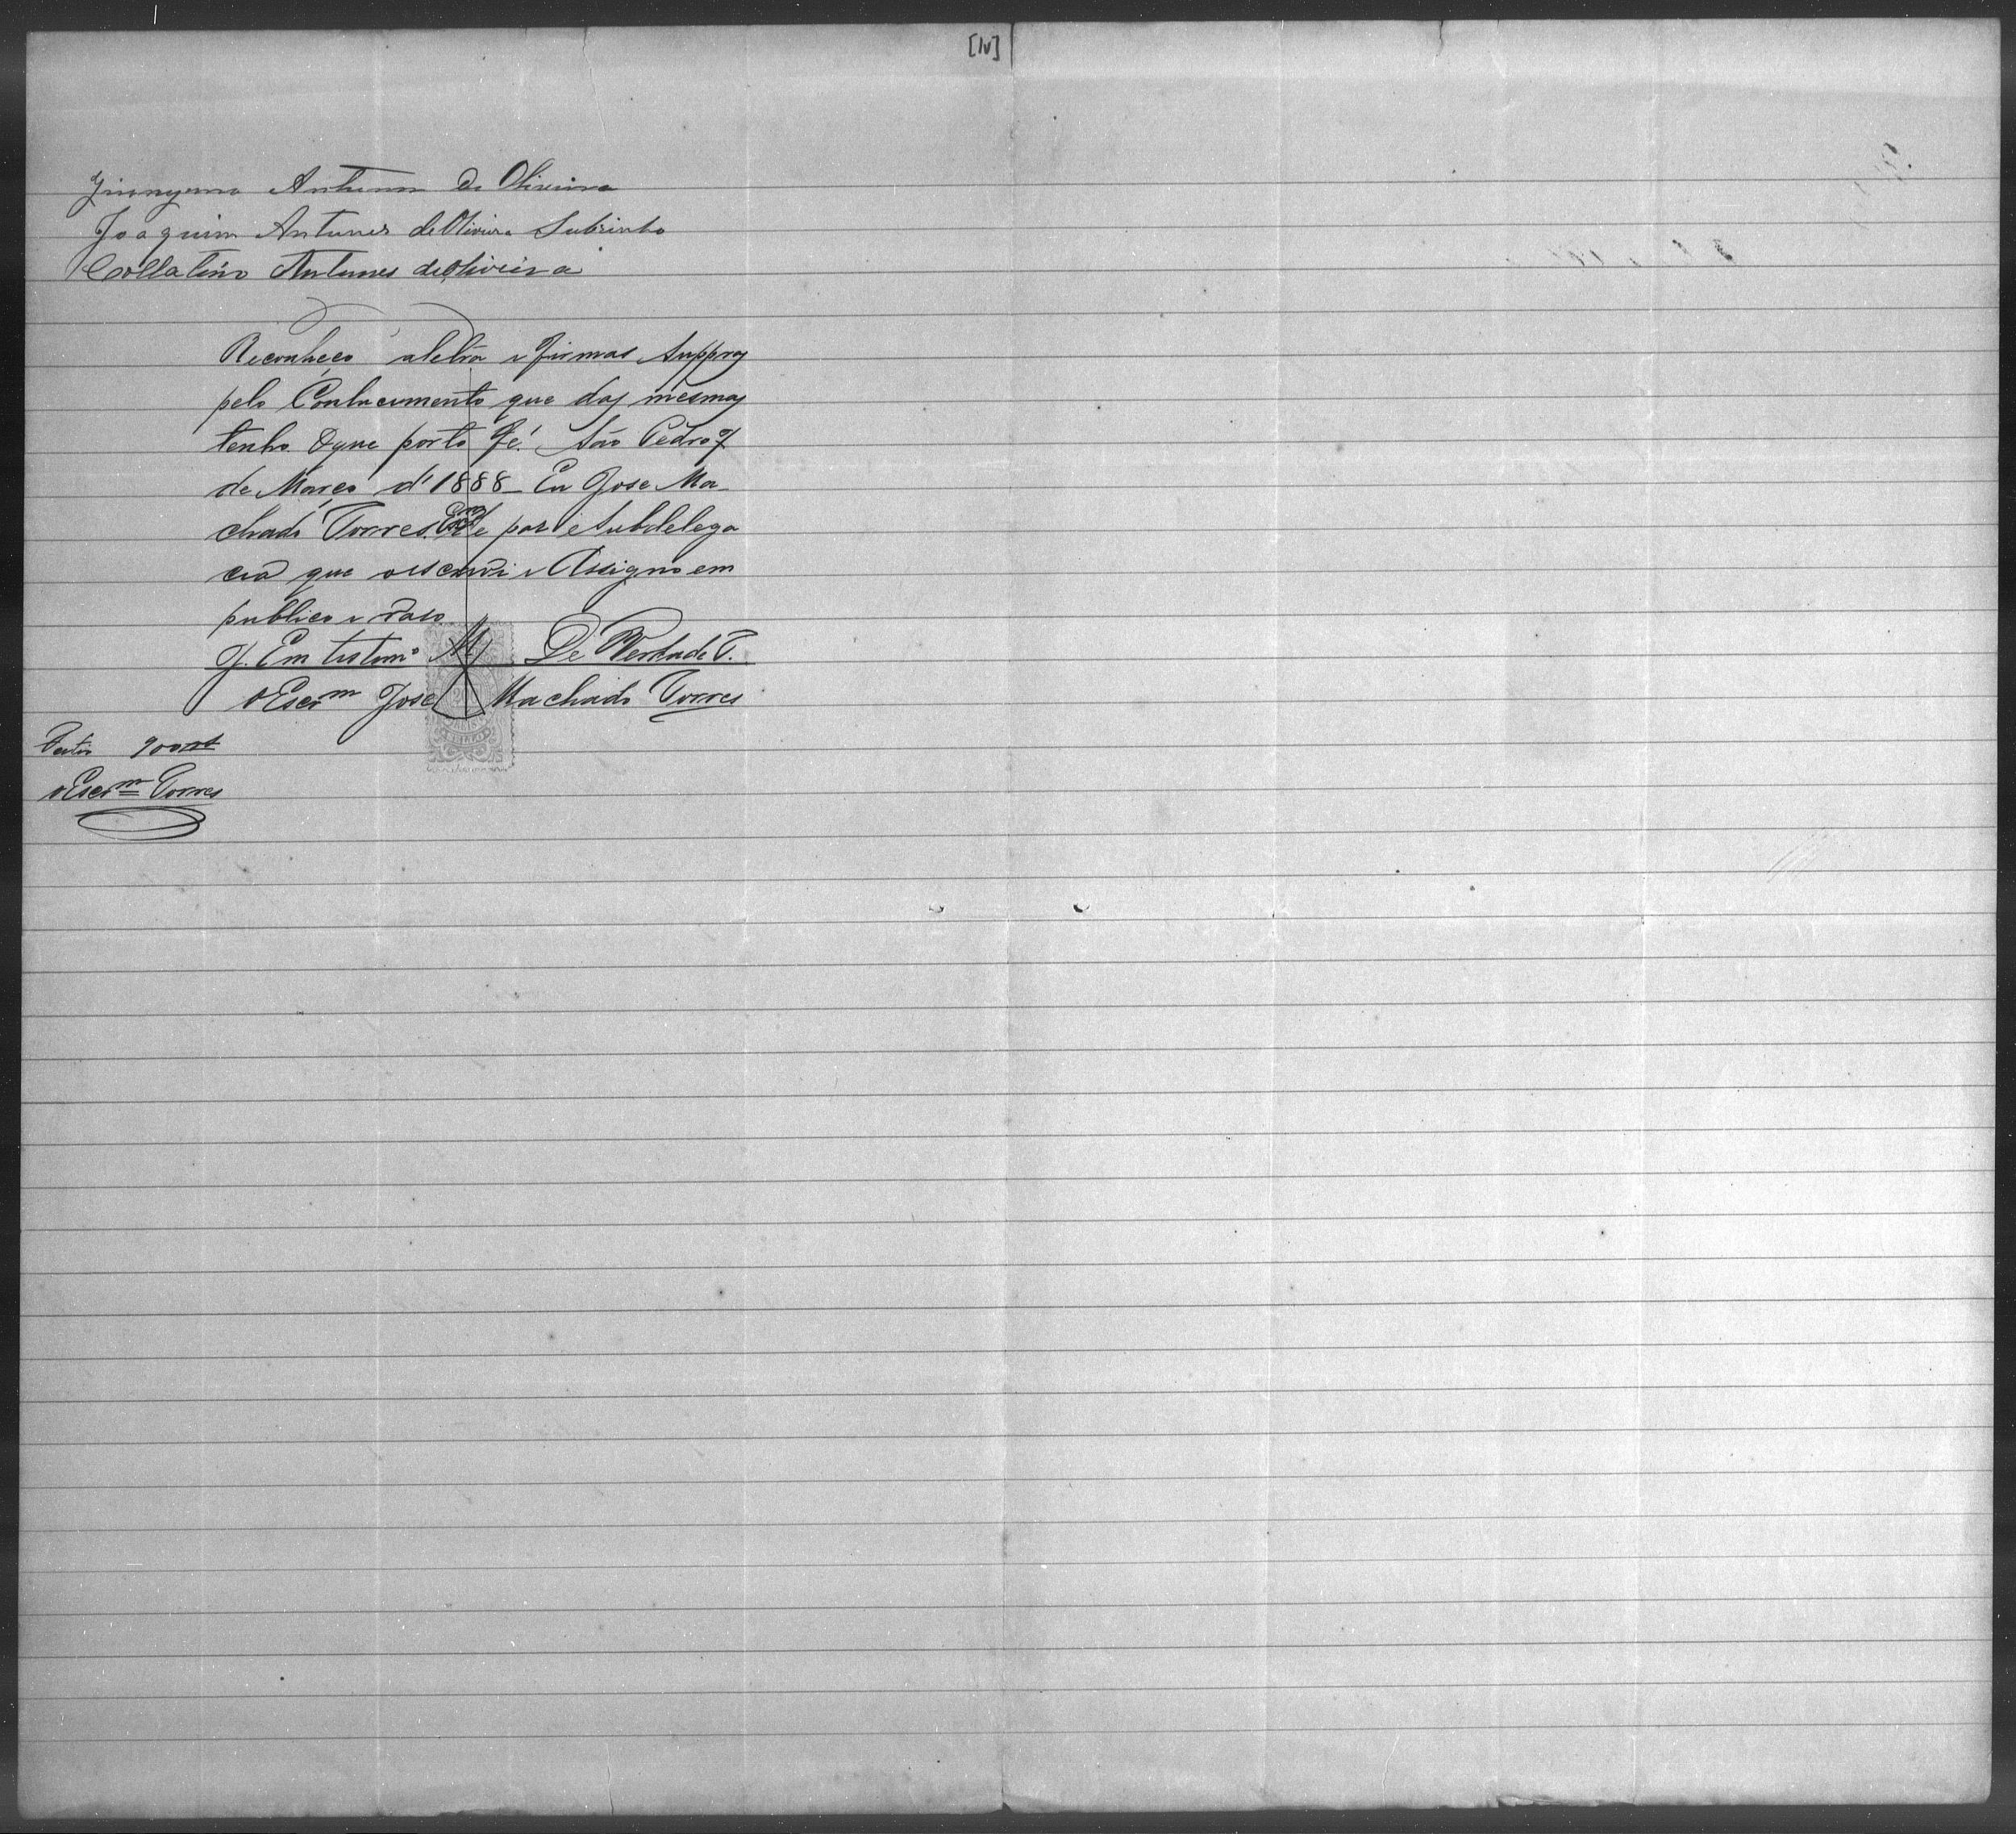 [1v]
Antunes de Oliveira
Joaquim Antunes de Oliveira Subrinho
Collatino Antunes de Oliveira
Reconheço a letra e firmas Suppras
pelo Conhecimento que das mesmas
tenho. O que porto fé. São Pedro 7
de Março d'1888 - Eu Jose Ma-
chado Torres. por e Subdelega
cia que o escrevi e Assigno em
publico e raso
J. Em testimº M De Verdade T.
o Escrm Jose Machado Torres
900rs
o Escrm Torres